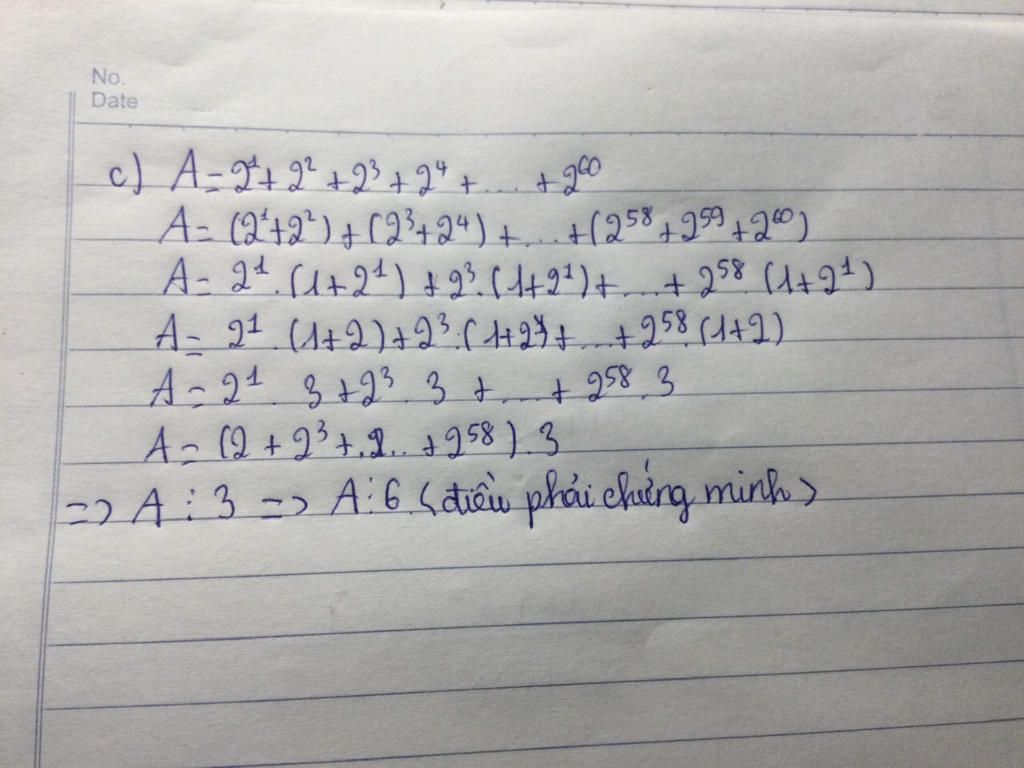 No.
Date
c) A = 2¹ + 2² + 2³ + 2⁴ + ... + 2⁶⁰
A = (2¹+2²) + (2³+2⁴) + ... + (2⁵⁸ + 2⁵⁹ + 2⁶⁰)
A = 2¹ . (1+2¹) + 2³ . (1+2¹) + ... + 2⁵⁸ (1+2¹)
A = 2¹ (1+2) + 2³ . (1+2) + ... + 2⁵⁸ . (1+2)
A = 2¹ . 3 + 2³ . 3 + ... + 2⁵⁸ . 3
A = (2 + 2³ + ... + 2⁵⁸) . 3
=> A ⋮ 3 => A ⋮ 6 (điều phải chứng minh)